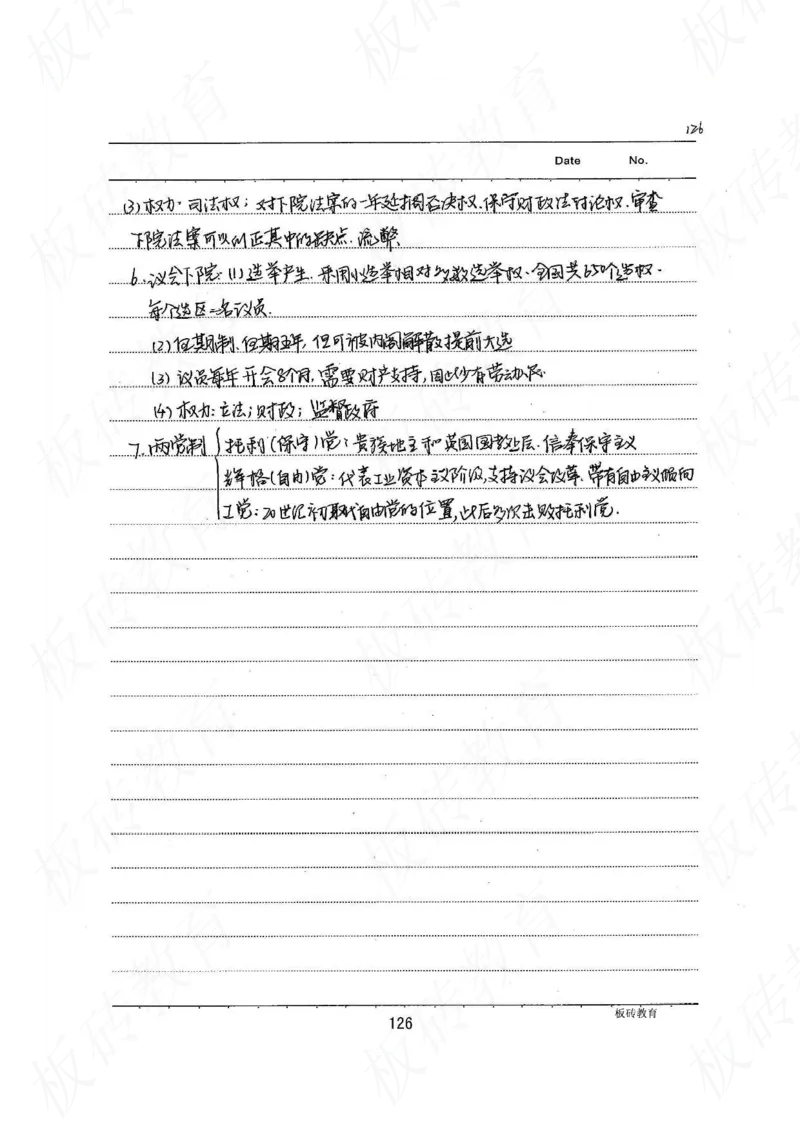 126
Date No.
(3) 权力: 司法权; 对下院法案的一年延搁否决权. 保守财政法讨论权. 审查
下院法案可以纠正其中的缺点. 流弊.
6. 议会下院: (1) 选举产生. 采用小选举相对多数选举权. 全国共650个选权.
每个选区一名议员.
(2) 任期制. 任期五年, 但可被内阁解散提前大选
(3) 议员每年开会8个月, 需要财产支持, 因此少有劳动人民.
(4) 权力: 立法; 财政; 监督政府
7. 两党制 托利(保守)党: 贵族地主和英国国教上层. 信奉保守主义
辉格(自由)党: 代表工业资本主义阶级, 支持议会改革. 带有自由主义倾向
工党: 20世纪初取代自由党的位置, 此后多次击败托利党.
126
板砖教育